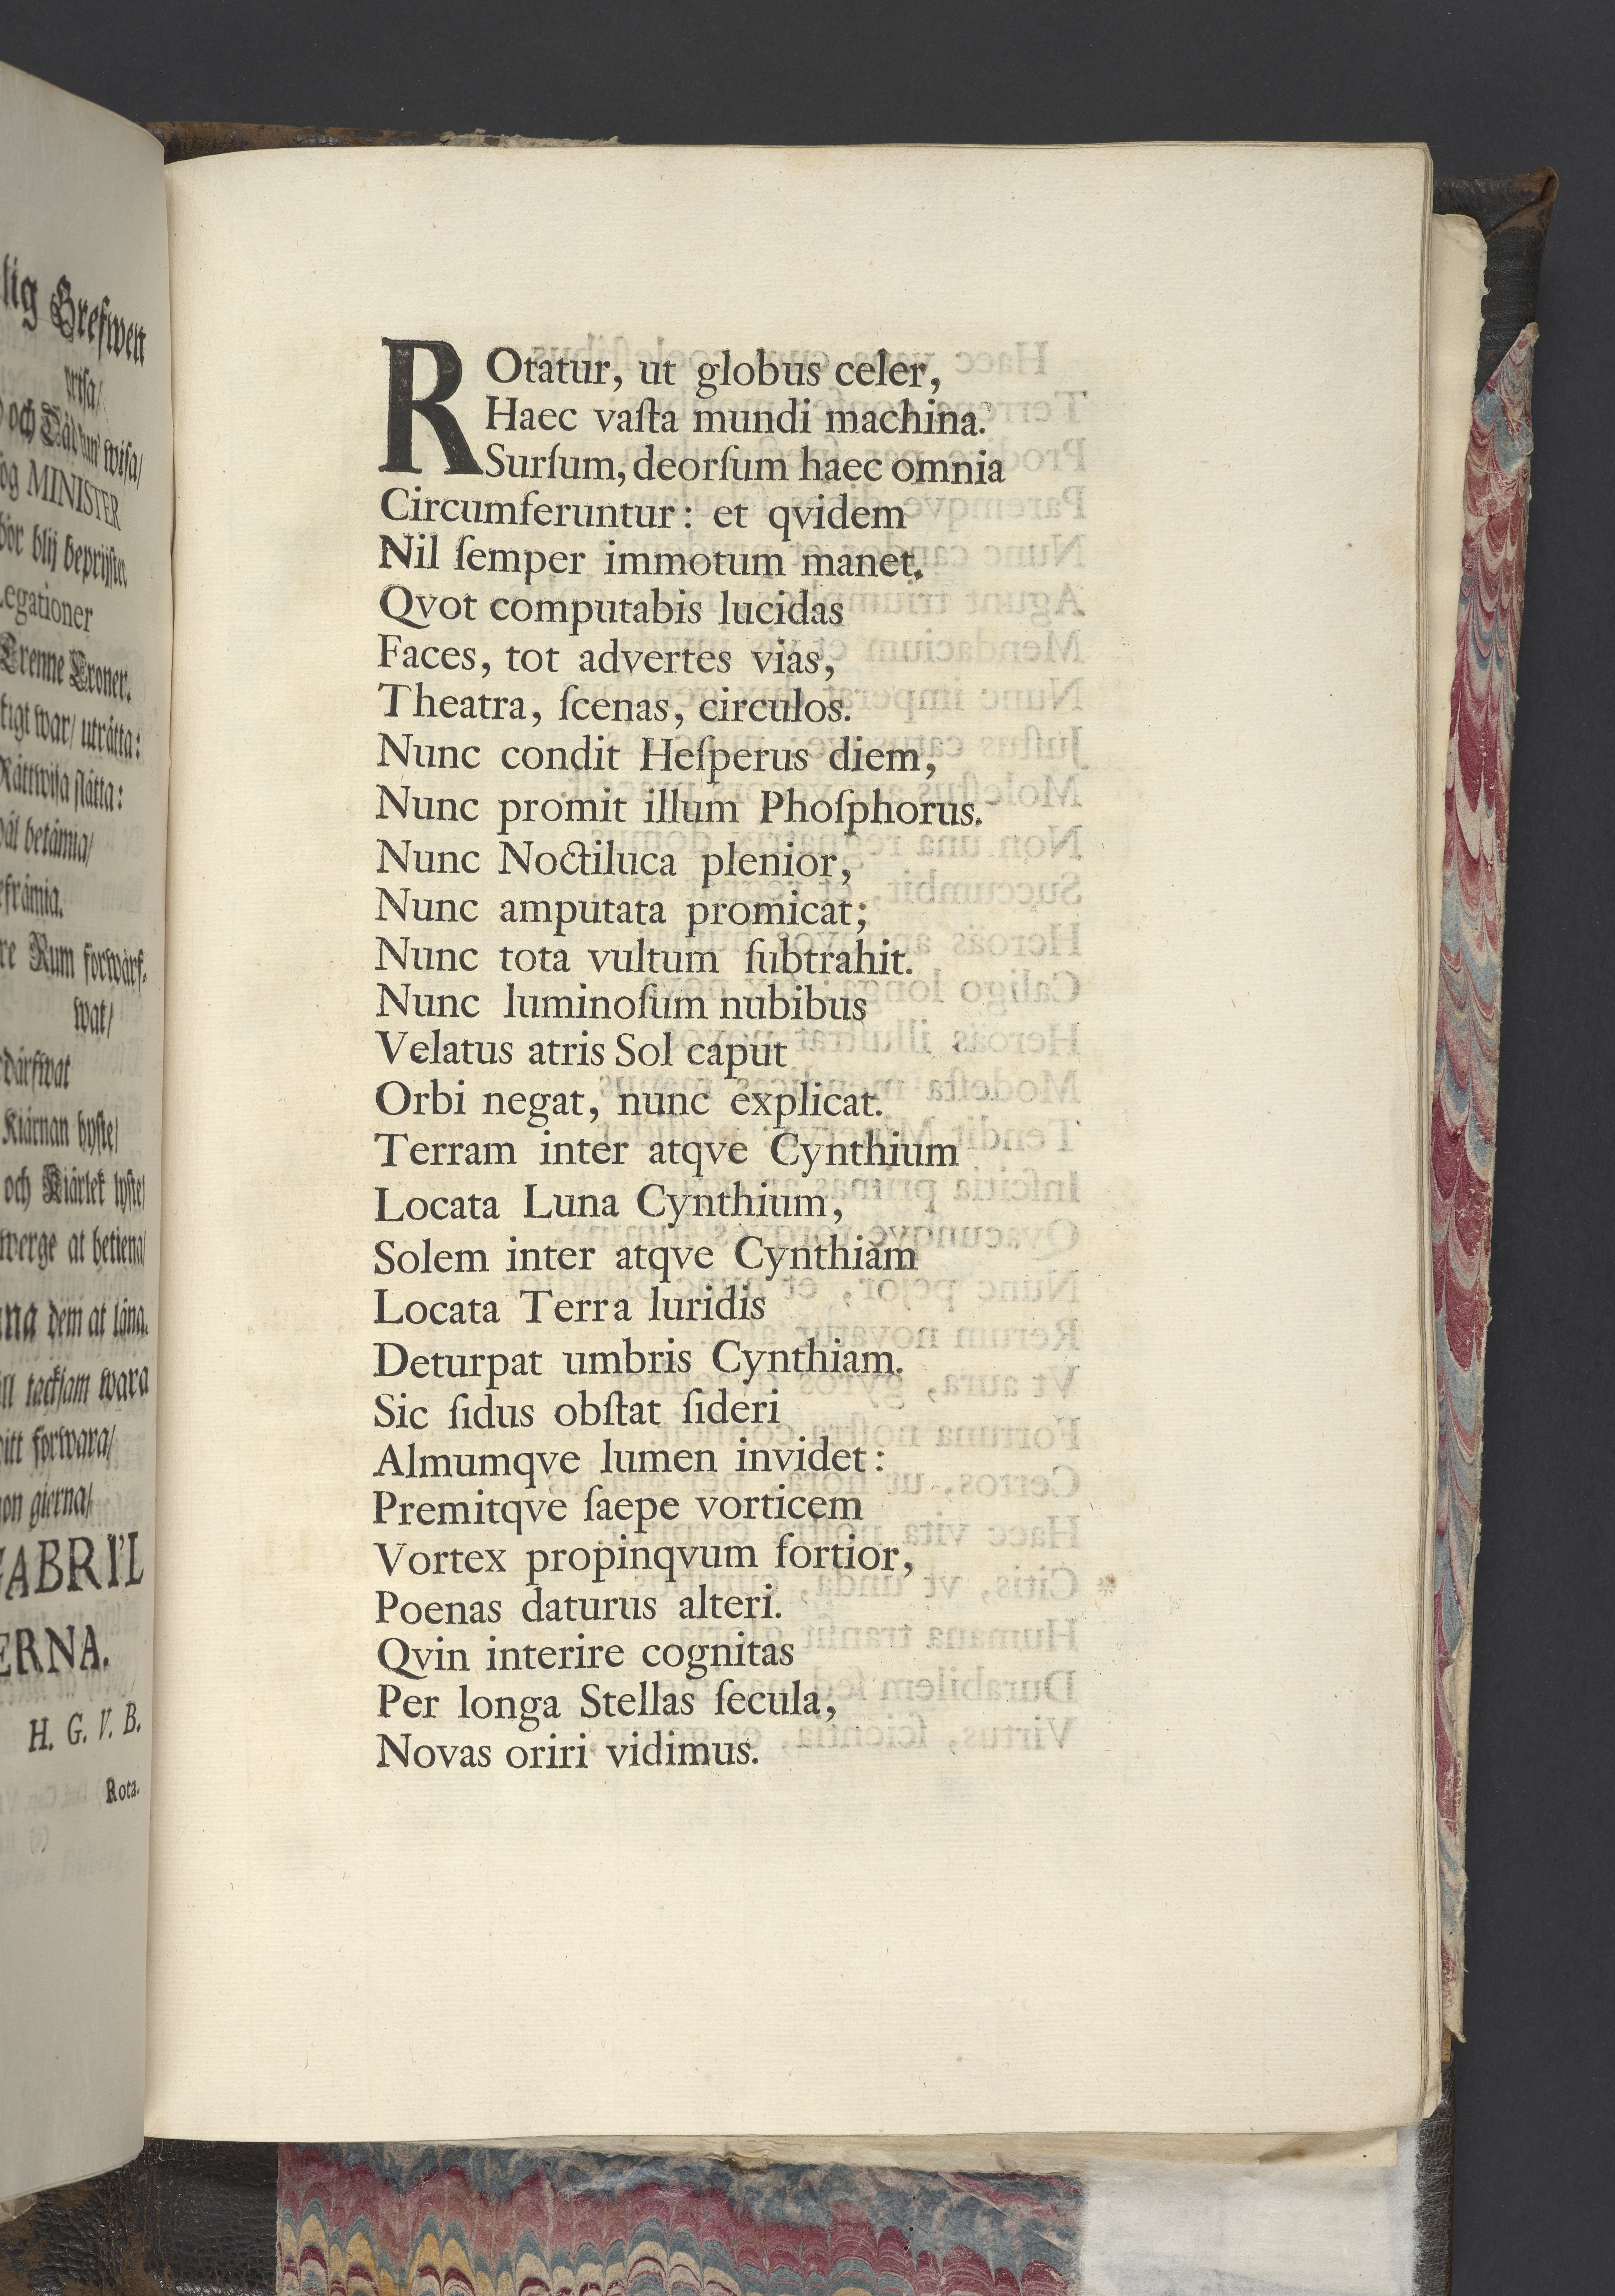 lig Grefwen
wisa/
och Däd
wisa/
og MINISTER
bör blij beprijster
Legationer
Trenne Croner.
war/ uträtta:
Rättwisa slätta:
betämia/
re Rum
wat/
Kiärnan hyste/
och Kiärlek lyste/
werge at betiena/
dem at låna.
tacksam wara
itt forswara/
on gierna/
GABRI'L
ERNA.
H. G. V. B.
Rota-
ROtatur, ut globus celer,
Haec vaſta mundi machina.
Surſum, deorſum haec omnia
Circumferuntur: et qvidem
Nil ſemper immotum manet.
Qvot computabis lucidas
Faces, tot advertes vias,
Theatra, ſcenas, circulos.
Nunc condit Heſperus diem,
Nunc promit illum Phoſphorus.
Nunc Noctiluca plenior,
Nunc amputata promicat;
Nunc tota vultum ſubtrahit.
Nunc luminoſum nubibus
Velatus atris Sol caput
Orbi negat, nunc explicat.
Terram inter atqve Cynthium
Locata Luna Cynthium,
Solem inter atqve Cynthiam
Locata Terra luridis
Deturpat umbris Cynthiam.
Sic ſidus obſtat ſideri
Almumqve lumen invidet:
Premitqve ſaepe vorticem
Vortex propinqvum fortior,
Poenas daturus alteri.
Qvin interire cognitas
Per longa Stellas ſecula,
Novas oriri vidimus.